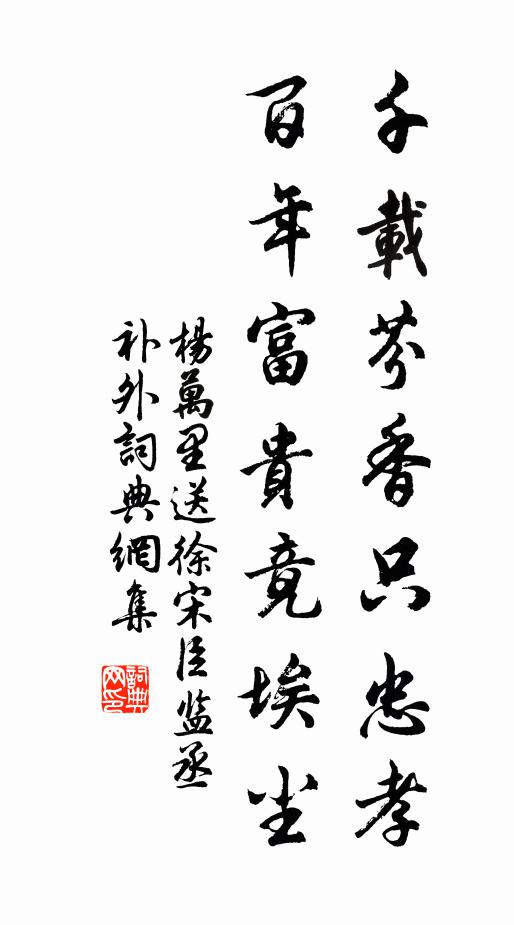 千載芬香只忠孝
百年富貴竟埃尘
楊萬里送徐宋臣监丞
补外詞典網集
詞典网印